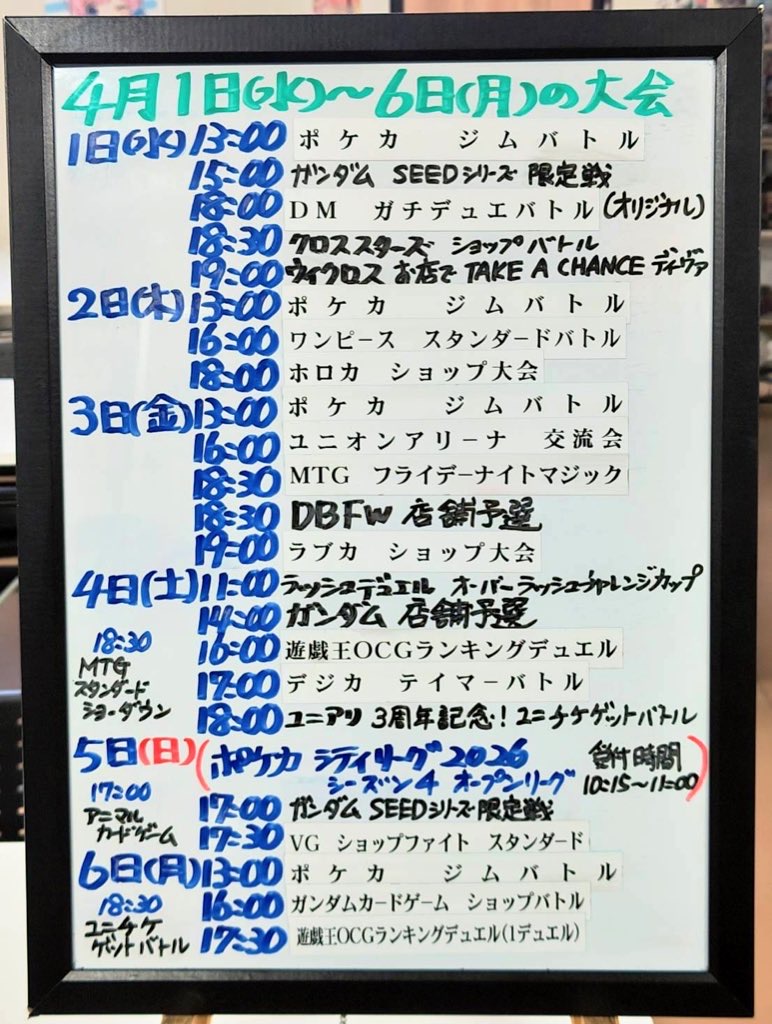 4月1日(水)～6日(月)の大会
1日(水) 13:00 ポケカ ジムバトル
15:00 ガンダム SEEDシリーズ 限定戦
18:00 DM ガチデュエバトル (オリジナル)
18:30 クロススターズ ショップバトル
19:00 ウィクロス お店で TAKE A CHANCE ディーヴァ
2日(木) 13:00 ポケカ ジムバトル
16:00 ワンピース スタンダードバトル
18:00 ホロカ ショップ大会
3日(金) 13:00 ポケカ ジムバトル
16:00 ユニオンアリーナ 交流会
18:30 MTG フライデーナイトマジック
18:30 DBFW 店舗予選
19:00 ラブカ ショップ大会
4日(土) 11:00 ラッシュデュエル オーバーラッシュチャレンジカップ
14:00 ガンダム 店舗予選
16:00 遊戯王OCGランキングデュエル
17:00 デジカ テイマーバトル
18:00 ユニアリ 3周年記念! ユニチケゲットバトル
18:30
MTG
スタンダード
ショーダウン
5日(日) (ポケカ シティリーグ2026
シーズン4 オープンリーグ
受付時間
10:15～11:00)
17:00 ガンダム SEEDシリーズ 限定戦
17:30 VG ショップファイト スタンダード
17:00
アニマル
カードゲーム
6日(月) 13:00 ポケカ ジムバトル
16:00 ガンダムカードゲーム ショップバトル
17:30 遊戯王OCGランキングデュエル(1デュエル)
18:30
ユニチケ
ゲットバトル